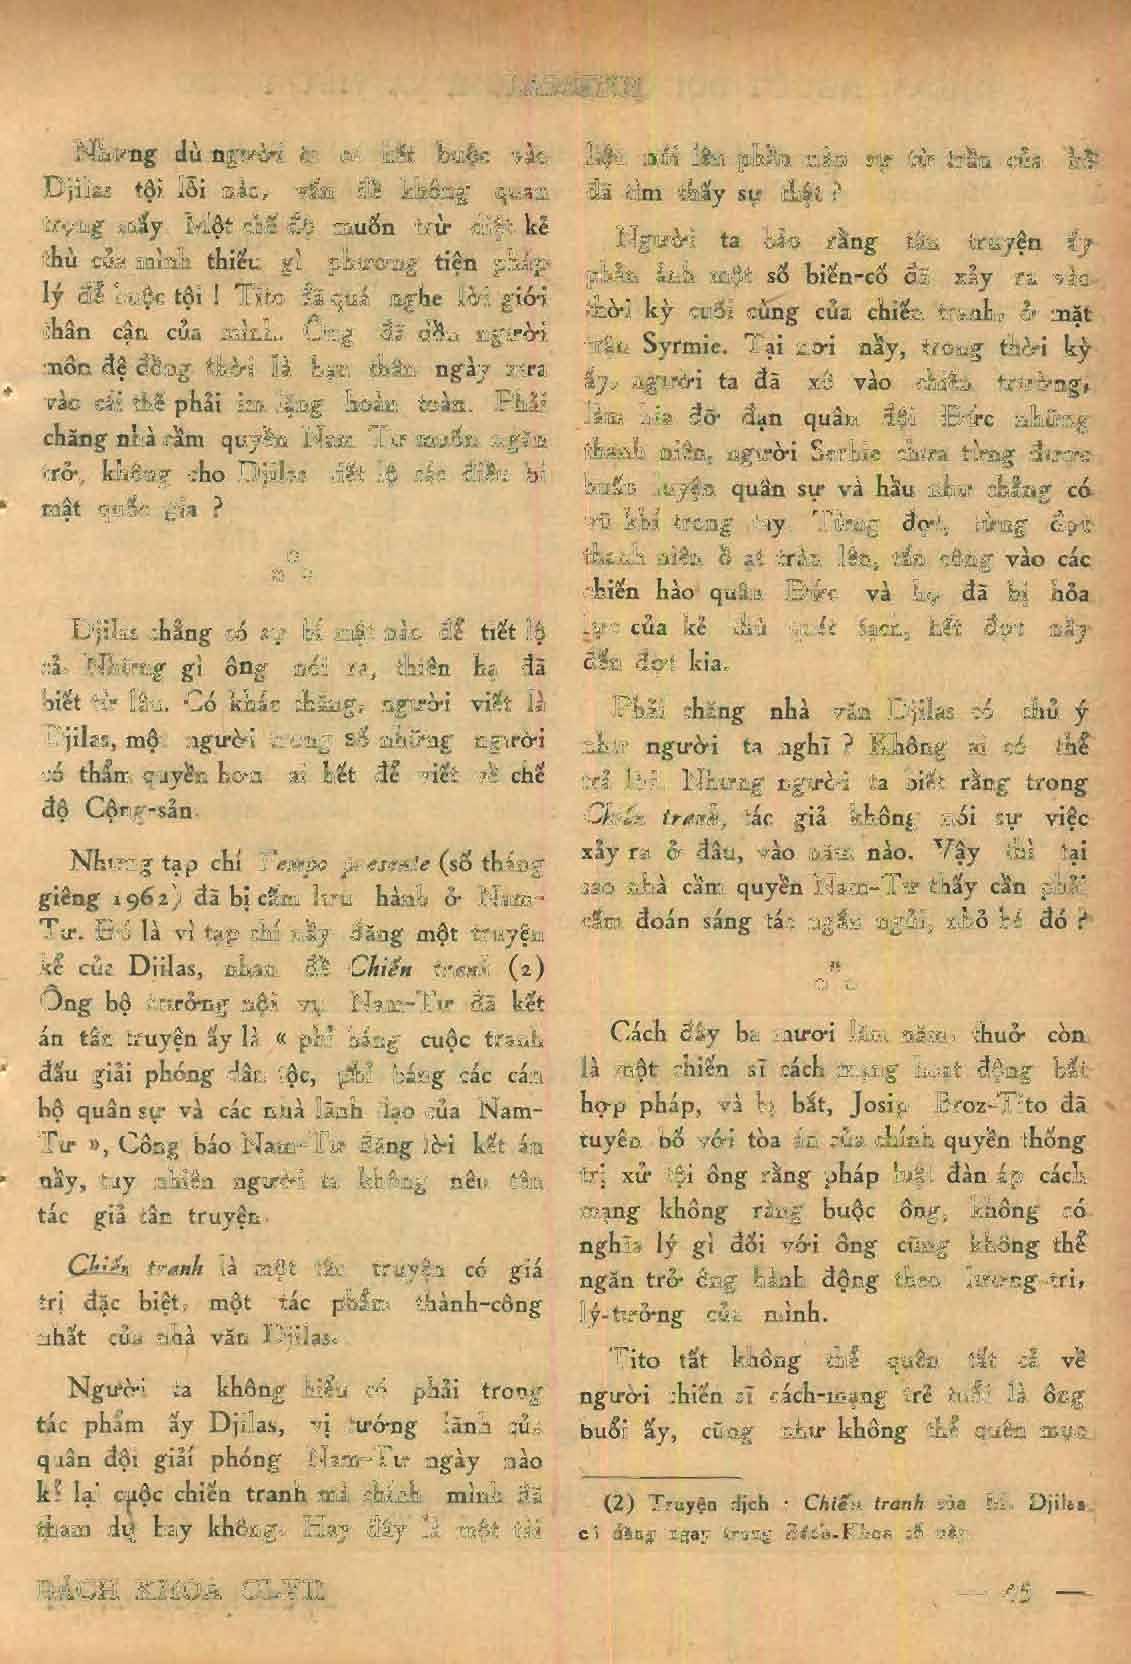 Nhưng dù người ta có kết buộc vào
Djilas tội lỗi nào, vấn đề không quan
trọng mấy. Một chế độ muốn trừ diệt kẻ
thù của mình thiếu gì phương tiện pháp
lý để buộc tội ! Tito đã quá nghe lời giới
thân cận của mình. Ông đã dồn người
môn đệ đồng thời là bạn thân ngày xưa
vào cái thế phải im lặng hoàn toàn. Phải
chăng nhà cầm quyền Nam Tư muốn ngăn
trở, không cho Djilas tiết lộ các điều bí
mật quốc gia ?
Djilas chẳng có sự bí mật nào để tiết lộ
cả. Những gì ông nói ra, thiên hạ đã
biết từ lâu. Có khác chăng, người viết là
Djilas, một người trong số những người
có thẩm quyền hơn ai hết để viết về chế
độ Cộng-sản.
Nhưng tạp chí Tempo presente (số tháng
giêng 1962) đã bị cấm lưu hành ở Nam-
Tư. Đó là vì tạp chí nầy đăng một truyện
kể của Djilas, nhan đề Chiến tranh (2)
Ông bộ trưởng nội vụ Nam-Tư đã kết
án tân truyện ấy là « phỉ báng cuộc tranh
đấu giải phóng dân tộc, phỉ báng các cán
bộ quân sự và các nhà lãnh đạo của Nam-
Tư », Công báo Nam-Tư đăng lời kết án
nầy, tuy nhiên người ta không nêu tên
tác giả tân truyện.
Chiến tranh là một tân truyện có giá
trị đặc biệt, một tác phẩm thành-công
nhất của nhà văn Djilas.
Người ta không hiểu có phải trong
tác phẩm ấy Djilas, vị tướng lãnh của
quân đội giải phóng Nam-Tư ngày nào
kể lại cuộc chiến tranh mà chính mình đã
tham dự hay không. Hay đây là một tài
liệu nói lên phần nào sự từ trần của kẻ
đã tìm thấy sự thật ?
Người ta bảo rằng tân truyện ấy
phản ảnh một số biến-cố đã xảy ra vào
thời kỳ cuối cùng của chiến tranh, ở mặt
trận Syrmie. Tại nơi nầy, trong thời kỳ
ấy, người ta đã xô vào chiến trường,
làm bia đỡ đạn quân đội Đức những
thanh niên, người Serbie chưa từng được
huấn luyện quân sự và hầu như chẳng có
vũ khí trong tay. Từng đợt, từng đợt
thanh niên ồ ạt tràn lên, tấn công vào các
chiến hào quân Đức và họ đã bị hỏa
lực của kẻ thù quét sạch, hết đợt nầy
đến đợt kia.
Phải chăng nhà văn Djilas có chủ ý
như người ta nghĩ ? Không ai có thể
trả lời. Nhưng người ta biết rằng trong
Chiến tranh, tác giả không nói sự việc
xảy ra ở đâu, vào năm nào. Vậy thì tại
sao nhà cầm quyền Nam-Tư thấy cần phải
cấm đoán sáng tác ngắn ngủi, nhỏ bé đó ?
Cách đây ba mươi lăm năm, thuở còn
là một chiến sĩ cách mạng hoạt động bất
hợp pháp, và bị bắt, Josip Broz-Tito đã
tuyên bố với tòa án của chính quyền thống
trị xử tội ông rằng pháp luật đàn áp cách
mạng không ràng buộc ông, không có
nghĩa lý gì đối với ông cũng không thể
ngăn trở ông hành động theo lương-tri,
lý-tưởng của mình.
Tito tất không thể quên tất cả về
người chiến sĩ cách-mạng trẻ tuổi là ông
buổi ấy, cũng như không thể quên mục
(2) Truyện dịch : Chiến tranh của M. Djilas,
có đăng ngay trong Bách-Khoa số này.
BÁCH KHOA CLVII
— 45 —